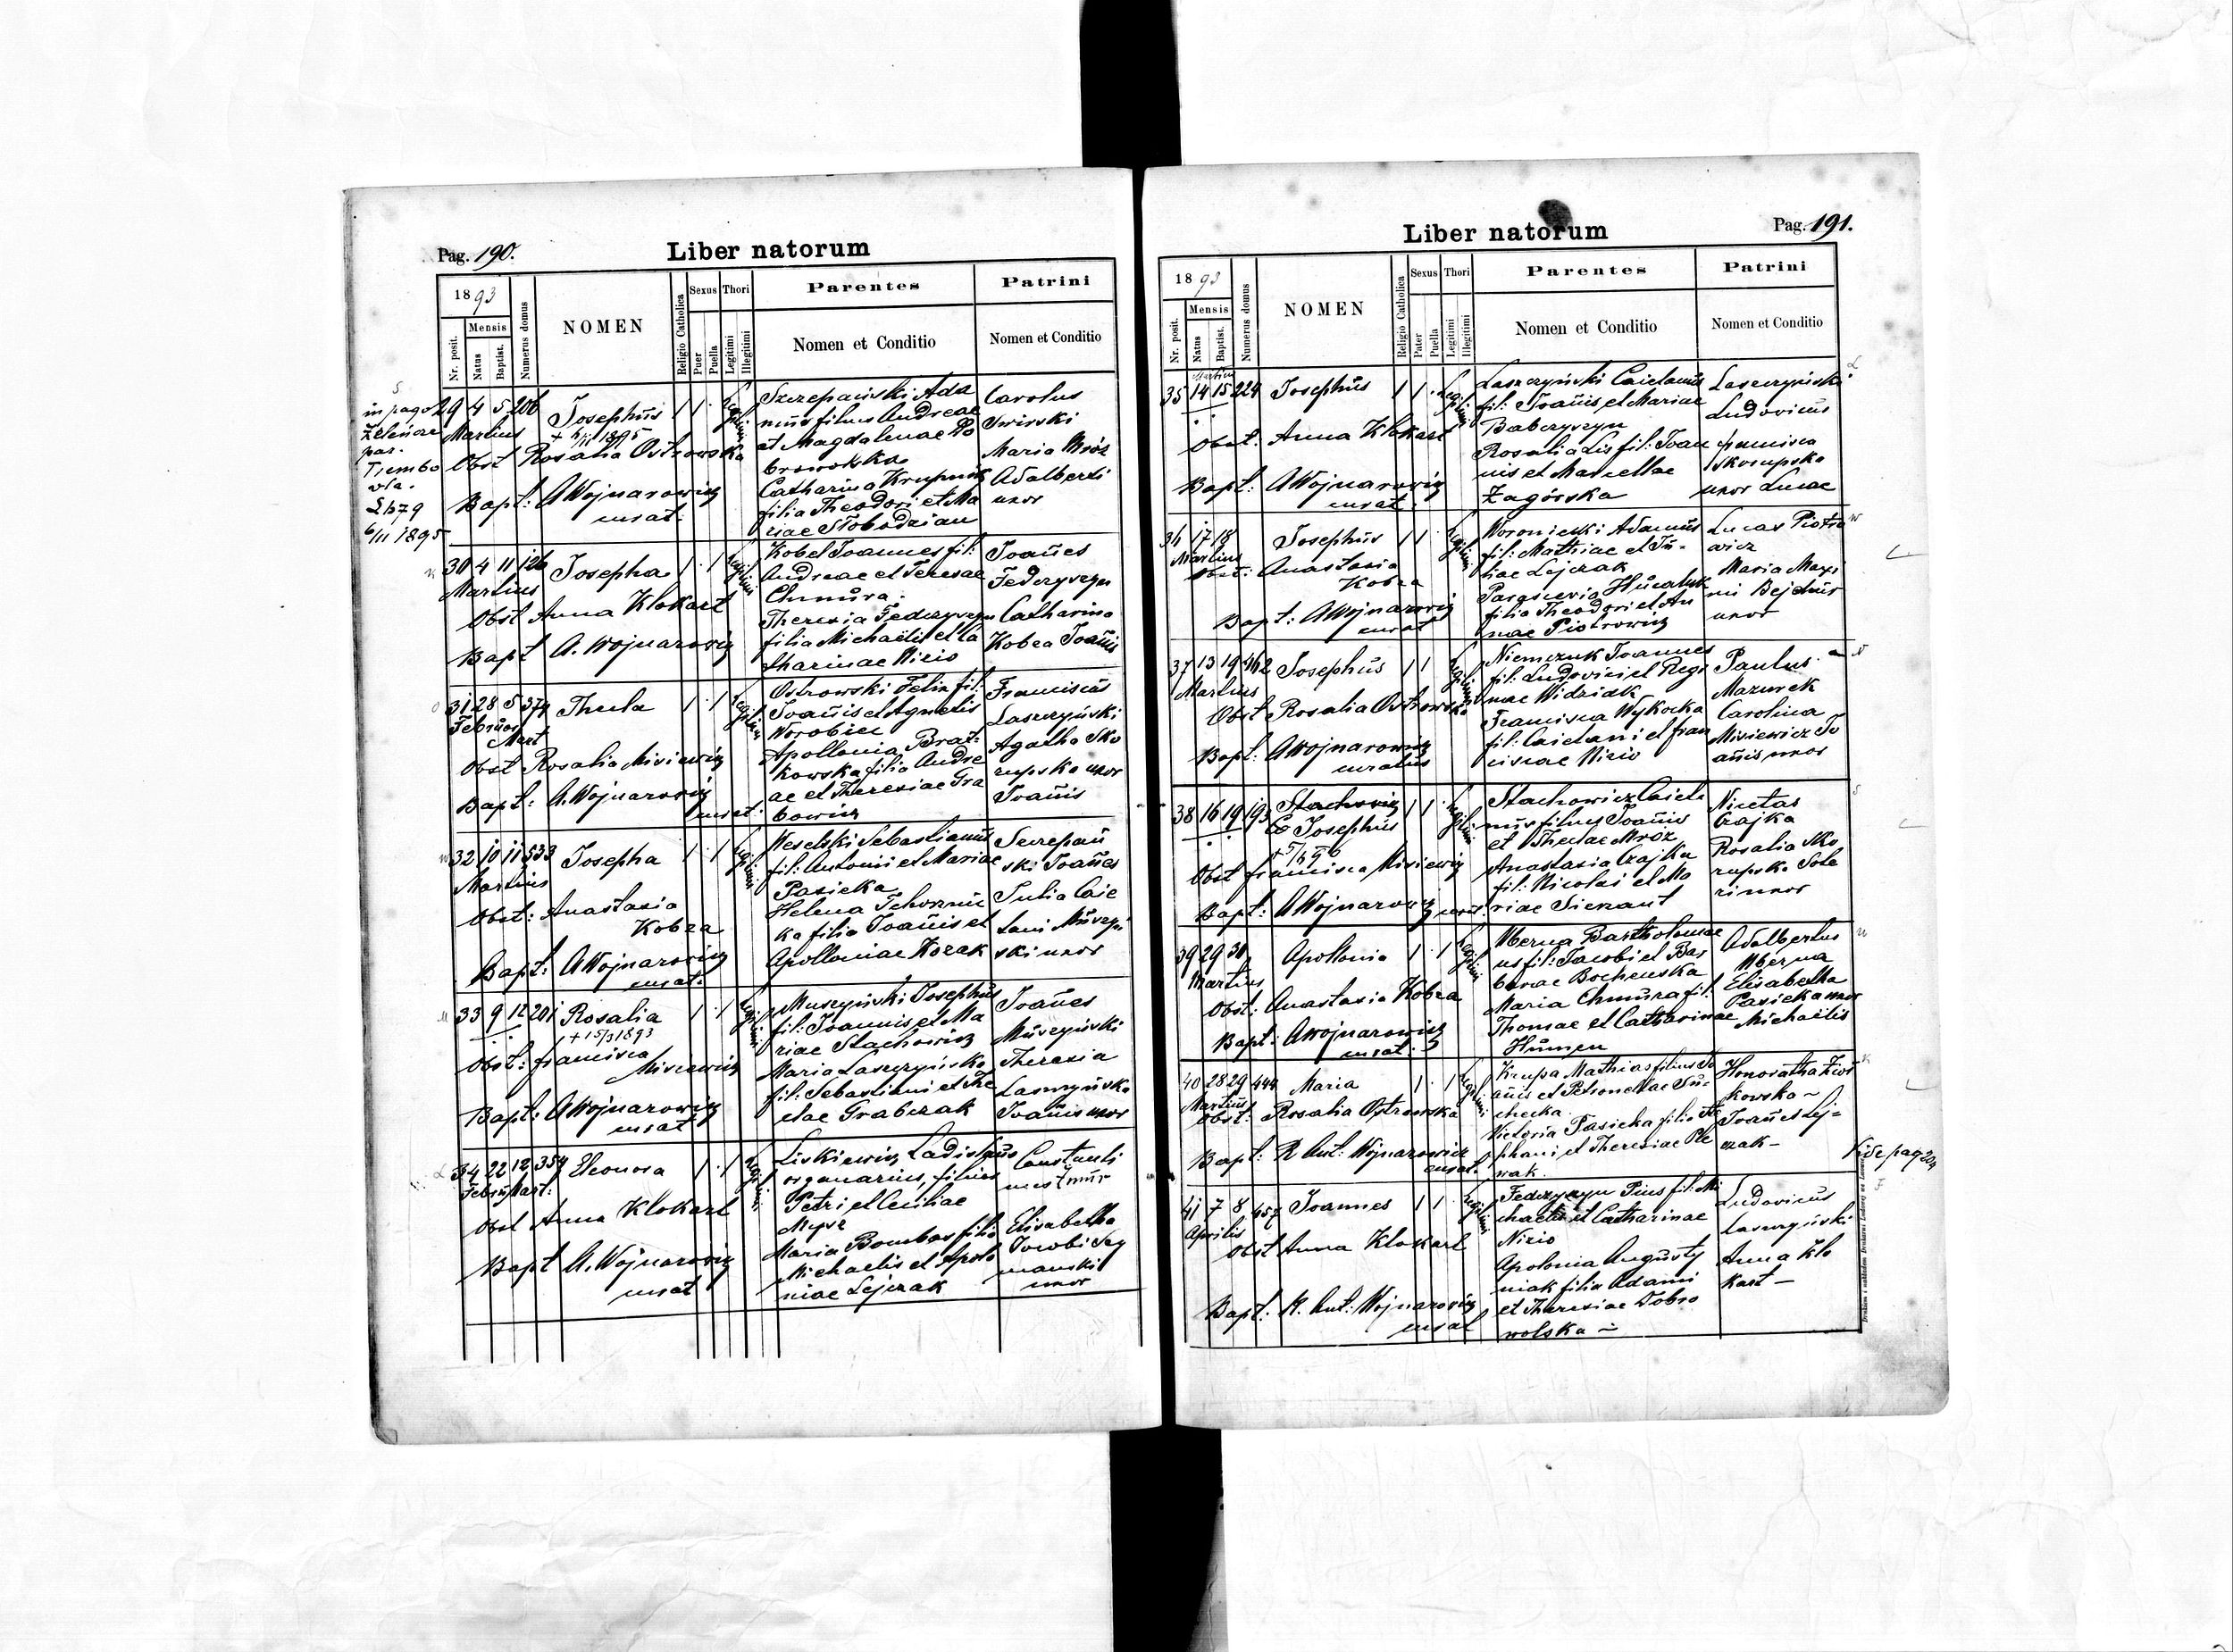 Pag. 190.
Liber natorum
1893
Nr. posit.
Mensis
Natus
Baptist.
Numerus domus
NOMEN
Religio Catholica
Sexus
Puer
Puella
Thori
Legitimi
Illegitimi
Parentes
Nomen et Conditio
Patrini
Nomen et Conditio
in pago
pas.
Trembo
wla.
6/11 1895
29 4 5 206 Josephus 1 1
Martius
Obst Rosalia Ostrowska
Bapt: A Wojnarowicz
curat.
Szczepański Ada
mus filius Andreae
et Magdalenae Do
browolska
Catharina Krupnik
filia Theodori et Ma
riae Slobodzian
Carolus
Swirski
Maria Mróz
Adalberti
uxor
30 4 11 126 Josepha 1 1
Martius
Obst Anna Klokart
Bapt A. Wojnarowicz
Kobel Joannes fil:
Andreae et Teresae
Chmura.
Theresia Federyszyn
filia Michaelis et Ca
tharinae Nizio
Joañes
Federyszyn
Catharina
Kobza Joañis
31 28 5 374 Thecla 1 1
Februar
Mart
Obst Rosalia Misiewicz
Bapt: A. Wojnarowicz
curat.
Ostrowski Felix fil:
Joañis et Agnetis
Worobiec
Apollonia Brat-
kowska filia Andre
ae et Theresiae Gra
bowicz
Franciscus
Laszczyński
Agatha Sko
rupska uxor
Joañis
32 10 11 533 Josepha 1 1
Martius
Obst: Anastasia
Kobza
Bapt: A Wojnarowicz
curat.
Weselski Sebastianus
fil: Antonii et Mariae
Pasieka
Helena
ka filia Joañis et
Apolloniae Kozak
Szczepań
ski Joañes
Julia Caie
tani
ski uxor
33 9 12 201 Rosalia 1 1
+ 15/3 1893
Obst: Francisca
Misiewicz
Bapt: A Wojnarowicz
curat
Muszyński Josephus
fil: Joannis et Ma
riae Stachowicz
Maria Laszczyńska
fil: Sebastiani et The
clae Grabczak
Joañes
Muszyński
Theresia
Laszczyńska
Joañis uxor
34 22 12 354 Eleonora 1 1
Febru Mart:
Obst Anna Klokart
Bapt A. Wojnarowicz
curat
Liskiewicz Ladislaus
organarius, filius
Petri et Ceciliae
Maria Bombas filia
Michaelis et Apolo
niae Lejczak
Constanti
nus
Elisabetha
Jacobi Szy
manski
uxor
Pag. 191.
Liber natorum
1893
Nr. posit.
Mensis
Natus
Baptist.
Numerus domus
NOMEN
Religio Catholica
Sexus
Pater
Puella
Thori
Legitimi
Illegitimi
Parentes
Nomen et Conditio
Patrini
Nomen et Conditio
Martius
35 14 15 224 Josephus 1 1
Obst: Anna Klokart
Bapt: A Wojnarowicz
curat.
Laszczyński Caietanus
fil: Joañis et Mariae
Babczyszyn
Rosalia Lis fil: Joan
nis et Marcellae
Zagórska
Laszczyński
Ludovicus
Francisca
Skorupska
uxor Lucae
36 17 18 Josephus 1 1
Martius
Obst: Anastasia
Kobza
Bapt: A Wojnarowicz
curat
Woroniecki Adamus
fil: Mathiae et Ju-
liae Lejczak
filia Theodori et An
nae Piotrowicz
Lucas Piotro
wicz
Maria Maxi
mi
uxor
37 13 19 462 Josephus 1 1
Martius
Obst Rosalia Ostrowska
Bapt: A Wojnarowicz
curatus
Niemczuk Joannes
fil: Ludovici et Regi
nae Widziak
Francisca Wykocka
fil: Caietani et Fran
ciscae Nizio
Paulus
Mazurek
Carolina
Misiewicz Jo
añis uxor
38 16 19 193 Stachowicz 1 1
Josephus
Obst Francisca Misiewicz
Bapt: A Wojnarowicz curat.
Stachowicz Caieta
nus filius Joañis
et Theclae Mróz
Anastasia Czajka
fil: Nicolai et Ma
riae
Nicetas
Czajka
Rosalia Sko
rupska
uxor
39 29 30 Apollonia 1 1
Martius
Obst: Anastasia Kobza
Bapt: A Wojnarowicz
curat.
Mierna Bartholomae
us fil: Jacobi et Bar
barae Bochenska
Maria Chmura fil:
Thomae et Catharinae
Humen
Adalbertus
Mierna
Elisabetha
Pasieka uxor
Michaëlis
40 28 29 444 Maria 1 1
Martius
Obst: Rosalia Ostrowska
Bapt: R Ant: Wojnarowicz
curat.
Krupa Mathias filius Jo
añis et Petronellae Su-
checka.
Victoria Pasieka filia Ste
phani et Theresiae Ple
wak.
Honoratha
kowska ~
Joañes Lej=
czak -
Vide pag
41 7 8 457 Joannes 1 1
Aprilis
Obst Anna Klokart
Bapt: R. Ant: Wojnarowicz
curat
Federyszyn Pius fil: Mi
chaelis et Catharinae
Nizio
Apolonia Augusty
niak filia Adami
et Theresiae Dobro
wolska -
Ludovicus
Laszczyński
Anna Klo
kart -